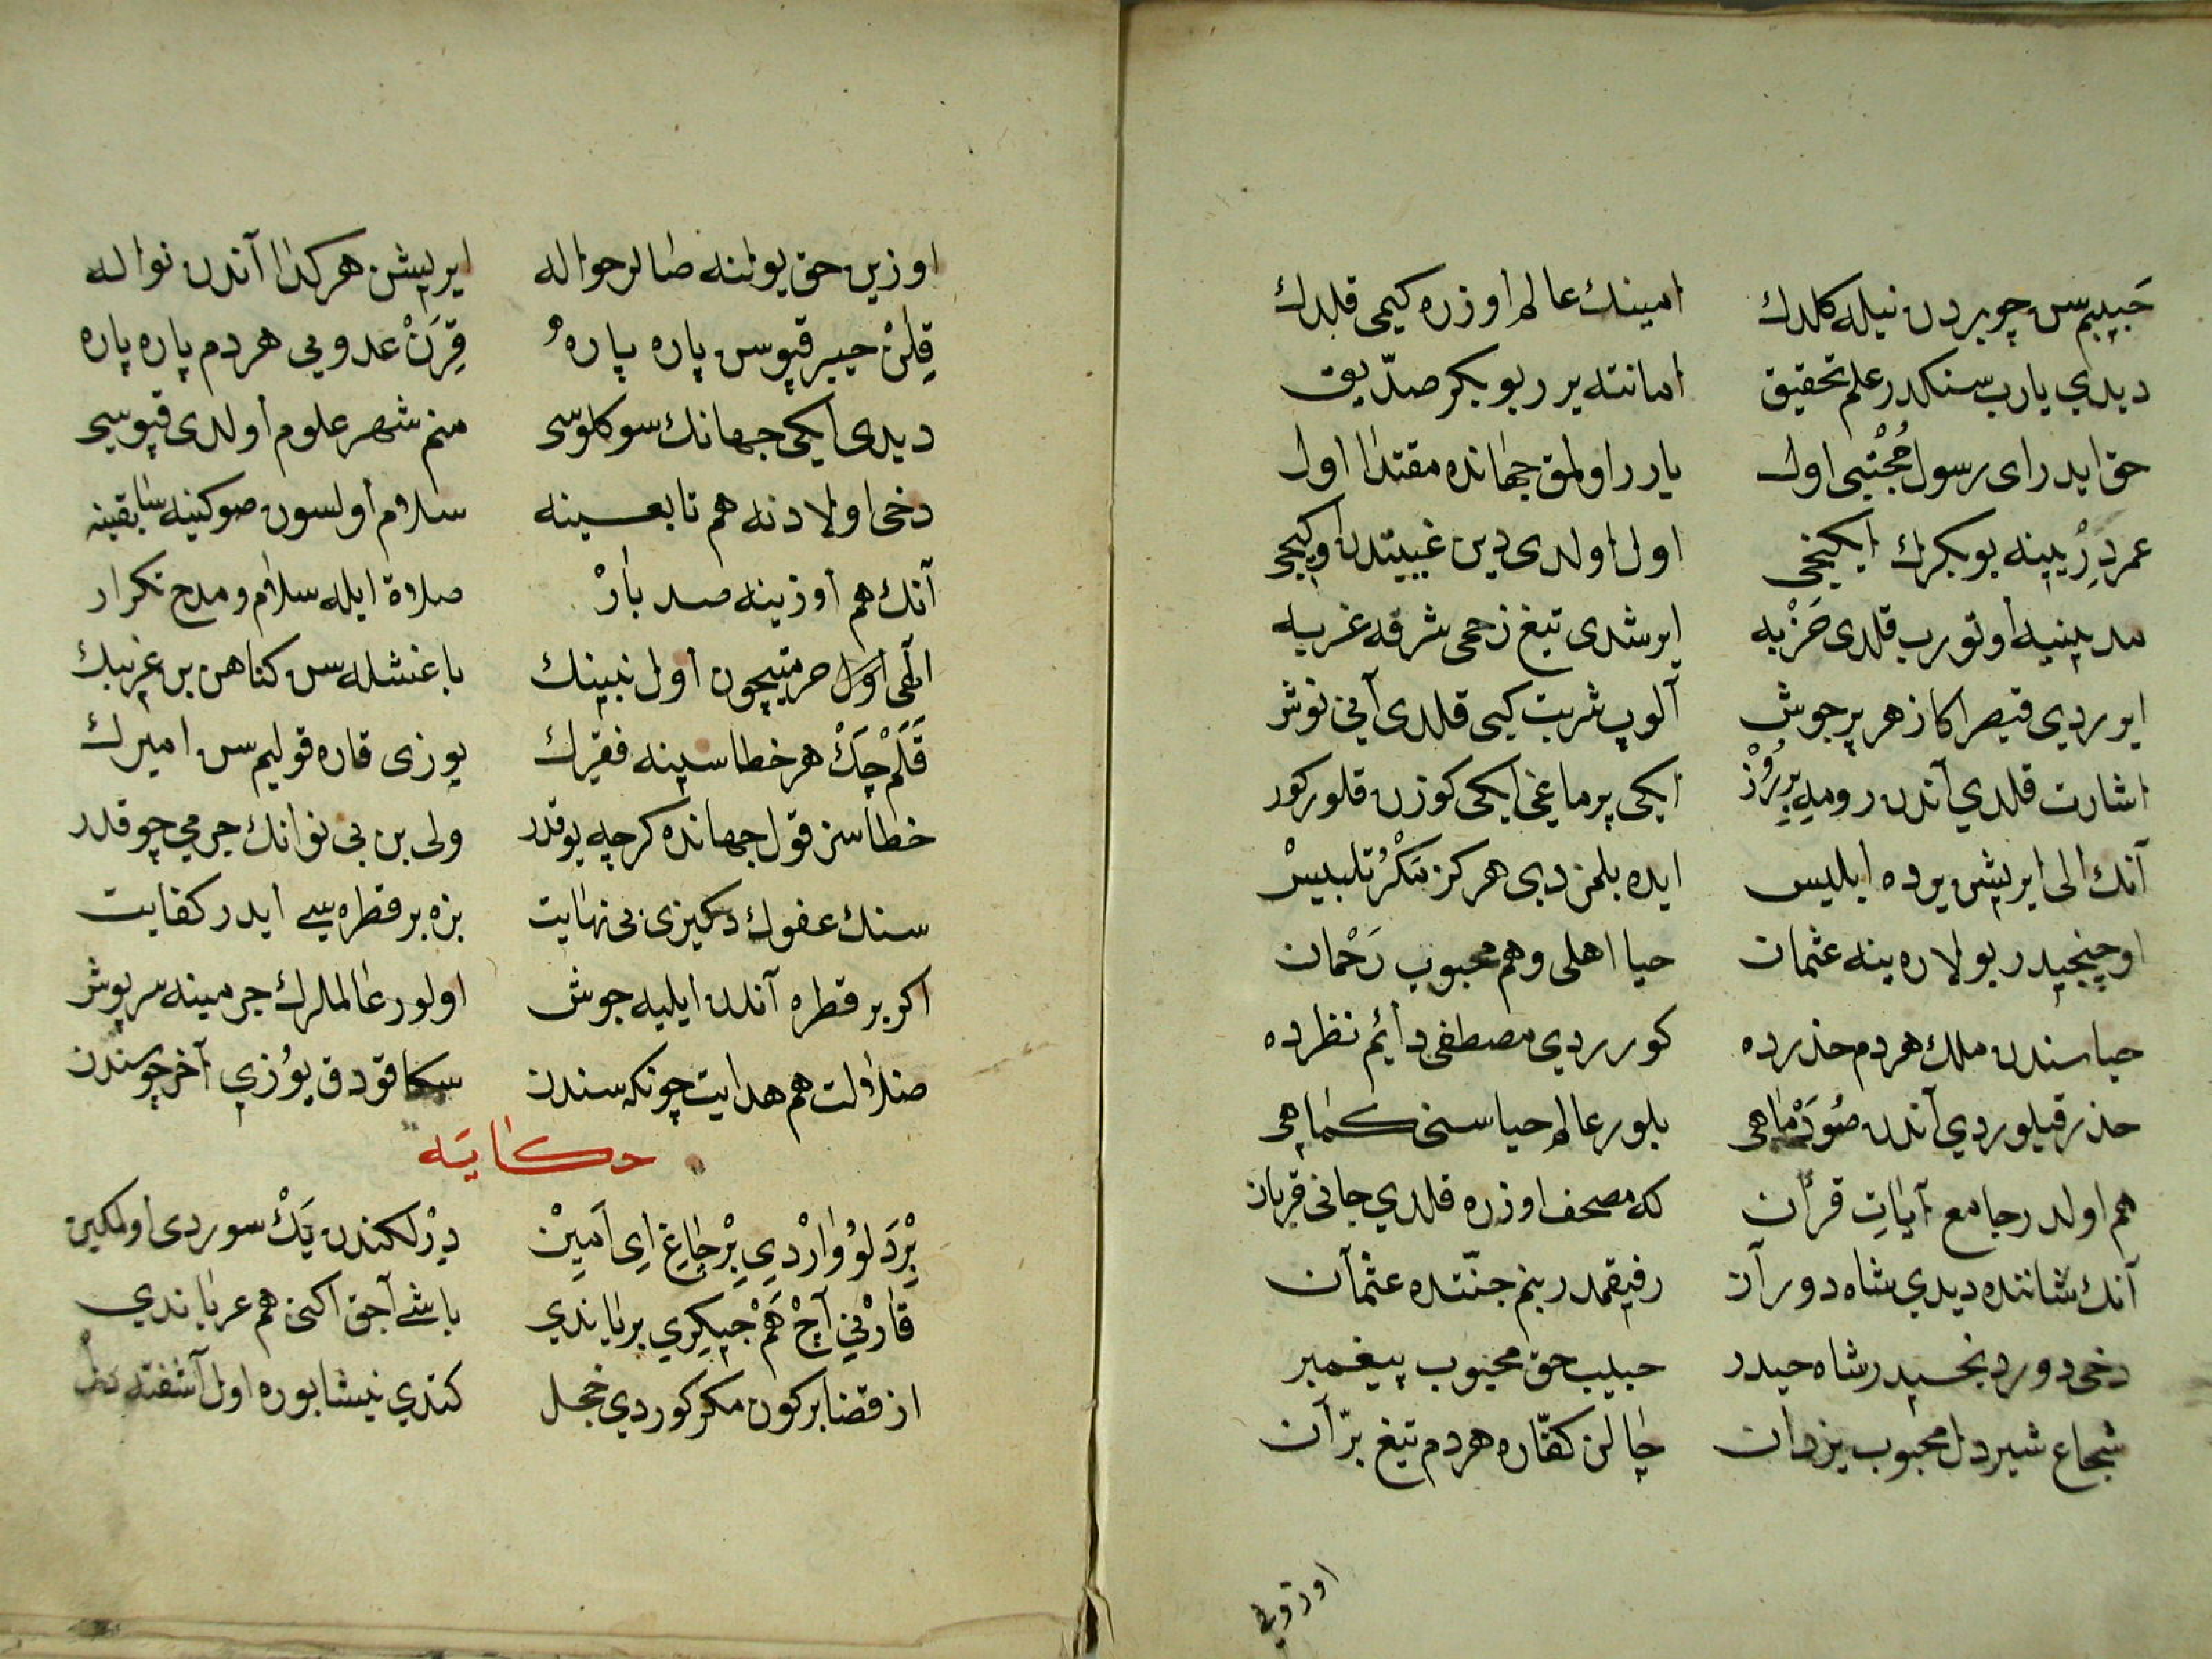 حبيبم سن چو بردن نيله كلدك امينك عالم اوزره كيمى قلدك
ديدي يارب سنكدر علم تحقيق امانته يرر بوبكر صدّيق
حق ايدر اى رسول مُجْتبى اول يارر اولمق جهانده مقتدا اول
عمردِرْ يينه بوبكرك ايكينجى اول اولدى دين غيبتدن
مدينيه اوتورب قلدى ضَرْبه ايرشدى تيغ زخمى شرقه غربه
ايوردي قيصر اكا زهر پر جوش آلوپ شربت كيبى قلدى آنى نوش
اشارت قلدي آندن روميه بِررُوزْ ايكى پرماغى ايكى كوزن قلور كور
آنك الى ايريشن يرده ابليس ايده بلمز دى هركز مَكْرُ تلبيسْ
اوچنجيدر بولاره ينه عثمان حيا اهلى و هم محبوب رَحْمان
حياسندن ملك هردم حذرده كورردي مصطفى دائم نظرده
حذر قيلوردي آندن صُودَه ماهى بلور عالم حياسنى كماهى
هم اولدر جامع آياتِ قرآن كه مصحف اوزره قلدي جانى قربان
آنك شاننده ديدي شاه دوران رفيقمدر بنم جنّتده عثمان
دخى دوردنجسيدر شاه حيدر حبيب حق محبوب پيغمبر
شجاع شيردل محبوب يزدان چالن كفّاره هردم تيغ برّان
اوزين حق يولنه صالر حواله ايريشن هر كدا آندن نواله
قِلن خيبر قپوسن پاره پاره قِرَنْ عدويى هردم پاره پاره
ديدى ايكى جهانك سوكلوسى منم شهر علوم اولدى قپوسى
دخى اولادنه هم تابعينه سلام اولسون صوكينه سابقينه
آنك هم اوزينه صد بارْ صلاة ايله سلام و مدح تكرار
الٓهى اول حرمتيچون اول نبينك باغشله سن كناهن بن غريبك
قَلَمْ چَكْ هر خطاسينه فقيرك يوزى قاره قوليم سن اميرك
خطاسز قول جهانده كرچه يوقدر ولى بن بى نوانك جرمى چوقدر
سنك عفوك دكيزى بى نهايت بزه بر قطره سے ايدر كفايت
اكر بر قطره آندن ايليه جوش اولور عالملرك جرمينه سرپوش
ضلالت هم هدايت چونكه سندن سكا قودق يوُزي آخر چو سندن
حكايه
بِرْ دَلوُ وارْدِي بِرْ چاغ اِى اَمِينْ دِرْلكندن يَكْ سوردى اولمكين
قارْني آچْ هَمْ جيكِري برياندي باشے آچق اكنى هم عرياندي
از قضا بر كون مكر كوردي خجل كتدي نيشابوره اول آشفته